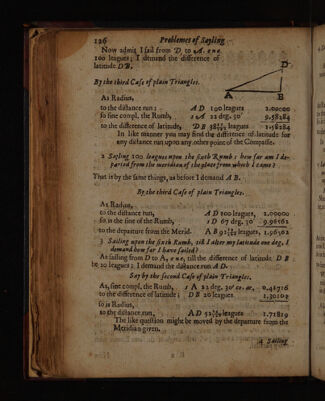 126 Problemes of Sayling
Now admit I sail from D to A. one
100 leagues; I demand the difference of
latitude DB.
By the third Case of plain Triangles.
D
A B
As Radius,
to the distance run: A D 100 leagues 2.00000
so sine compl. the Rumb, 1 A 22 deg. 30' 9.58284
to the difference of latitude, DB 38 leagues 1.58284
In like manner you may find the difference of latitude for
any distance run upon any other point of the Compasse.
2 Sayling 100 leagues upon the sixth Rumb: how far am I de-
parted from the meridian of the place from which I came?
That is by the same things, as before I demand A B.
By the third Case of plain Triangles.
As Radius,
to the distance run, A D 100 leagues, 2.00000
so is the sine of the Rumb, 1 D 67 deg. 30' 9.96562
to the departure from the Merid. A B 92 leagues, 1.96562
3 Sailing upon the sixth Rumb, till I alter my latitude one deg. I
demand how far I have sailed?
As sailing from D to A, one, till the difference of latitude D B
be 20 leagues; I demand the distance run A D.
Say by the second Case of plain Triangles.
As, sine compl. the Rumb, 1 A 22 deg. 30' co. ar. 0.41716
to the difference of latitude; D B 20 leagues 1.30103
so is Radius,
to the distance run, A D 52 leagues 1.71819
The like question might be moved by the departure from the
Meridian given.
4 Sailing